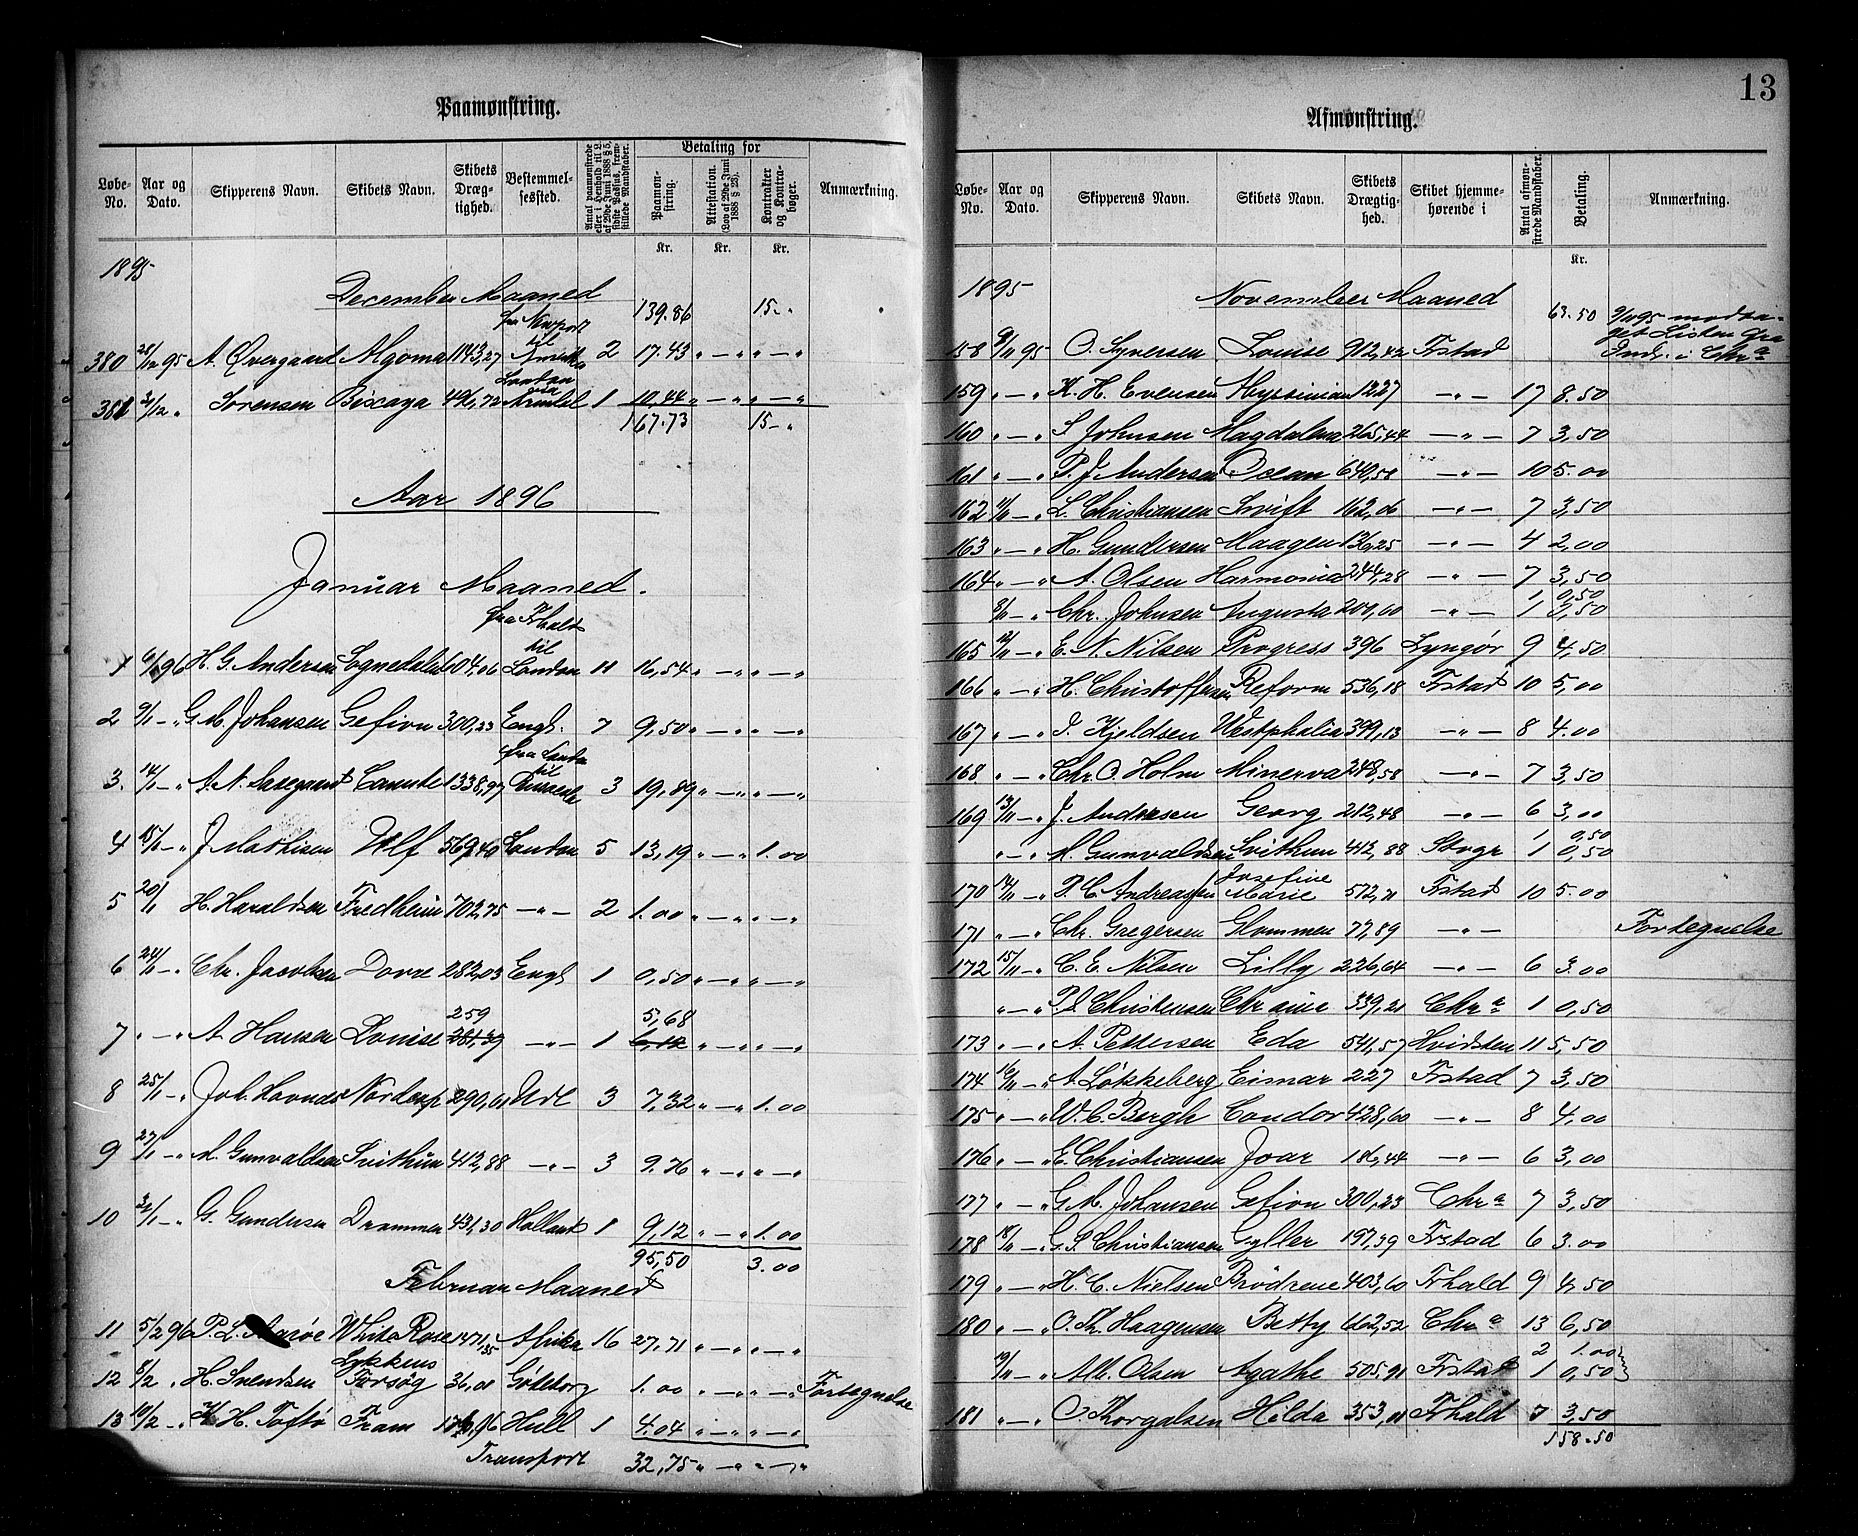 Paamønstring.
Løbe-No. Aar og Dato. Skipperens Navn. Skibets Navn. Skibets Drægtighed. Bestemmelsessted. Antal paamønstrede eller i Henhold til Betaling for Paamønstring. Attestation. (Lov af 29de Juni 1888 § 28). Kontrakter og Kontrabøger. Anmærkning.
Kr. Kr. Kr.
1895
December Maaned 139.86 15 - "
fra Newport til
380 28/12 95 A. Øvergaard Algoma 1143,27 2 17.43 " — " — "
London via
381 31/12 " Sørensen Biscaya 491,72 Arendal 1 10.44 " — " — "
167.73 15 - "
Aar 1896
Januar Maaned.
fra Frhald til
1 6/1 96 H. G. Andersen Sognedalen 604,06 London 11 16,54 " — " — "
2 9/1 - " G. M. Johansen Gefion 300,23 Engl. 7 9,50 " — " — "
fra London til
3. 14/1 - " A. N. Canute 1338,97 3 19,89 " — " — "
4 15/1 - " J. Mathisen Ulf 569,40 London 5 13,19 " — " 1.00
5 20/1 H. Haraldsen Fredheim 702,75 — " — 2 1.00 " — " — "
6 24/1 - " Chr. Jacobsen Dovre 282,03 Engl 1 0,50 " — " — "
259 5,68
7 " — " A. Hansen Louise 281,39 — " — 1 6,12 " — " — "
8 25/1 - " Joh. 290,61 Udl 3 7,32 " — " 1.00
9 27/1 - " M. Gunvaldsen Svithun 412,88 — " — 3 9.76 " — " — "
10 31/1 - " G. Gundersen Drammen 431,30 Holland 1 9,12 " — " 1.00
95,50 3.00
Februar Maaned
11 5/2 96 P. L. White Rose 1471,35 Afrika 16 27,71 " — " — "
Lykkens
12 8/2 " H. Svendsen Forsøg 36,01 Göteborg 1.00 " — " — " Fortegnelse
13 10/2 - " H. H. Toftø Fram Hull 1 4,04 " — " — "
Transport 32,75 " — " — "
13
Afmønstring.
Løbe-No. Aar og Dato. Skipperens Navn. Skibets Navn. Skibets Drægtighed. Skibet hjemmehørende i Antal afmønstrede Mandskaber. Betaling. Anmærkning.
Kr.
1895 November Maaned 63.50
9/11 95 modtaget Listen fra Indr. i Chr.a
158 9/11 95 O. Syversen Louise 912,42 Frstad
159 " — " K. H. Evensen Abyssinian 1227 — " — 17 8.50
160 " — " S Johnsen Magdalena 265,44 — " — 7 3,50
161 " — " P. J. Andersen Osean 640,58 — " — 10 5.00
162 11/11 — " L. Christiansen Svift 162,06 — " — 7 3,50
163 " — " H. Gundersen Maagen 136,25 — " — 4 2,00
164 " — " A. Olsen Harmonia 244,28 — " — 7 3,50
1 0,50
8/11 — " Chr. Johnsen Augusta 200,60 — " — 1 0,50
165 12/11 — " E. N. Nilsen Progress 396 Lyngør 9 4,50
166 " — " H. Christoffersen Reform 536,18 Frstad 10 5,00
167 " — " J. Kjeldsen Westphalia 399,13 — " — 8 4.00
168 " — " Chr. O. Holm Minerva 248,58 — " — 7 3,50
169 13/11 — " J. Andresen Georg 212,48 — " — 6 3,00
1 0,50
" — " M. Gunvaldsen Svithun 412,88 1 0,50
Josefine
170 14/11 — " P. C. Andreassen Marie 572,71 Frstad 10 5.00
171 " — " Chr. Gregersen Glommen 77,89 — " — Fortegnelse
172 15/11 — " C. E. Nilsen Lilly 226,64 — " — 6 3.00
" — " P. S. Christensen 339,21 Chr.a 1 0,50
173 " — " A. Pettersen Eda 541,57 Hvidsten 11 5,50
174 16/11 — " A. Løkkeberg Eimar 227 Frstad 7 3,50
175 " — " W. C. Bergh Condor 428,60 — " — 8 4,00
176 " — " E. Christiansen Joar 186,44 — " — 6 3,00
177 " — " G. M. Johansen Gefion 300,23 Chr.a 7 3,50
178 18/11 — " G. S. Christiansen Gyller 197,39 Frstad 6 3.00
179 " — " H. C. Nielsen Brödrene 403,60 Frhald 9 4,50
180 " — " O. Th. Haagensen Betty 662,52 Chr.a 13 6,50
2 1.00
19/11 — " Alb. Olsen Agathe 505,91 Frstad 1 0,50
181 " — " O. Thorgalsen Hilda 353,01 Frhald 7 3,50
158.50